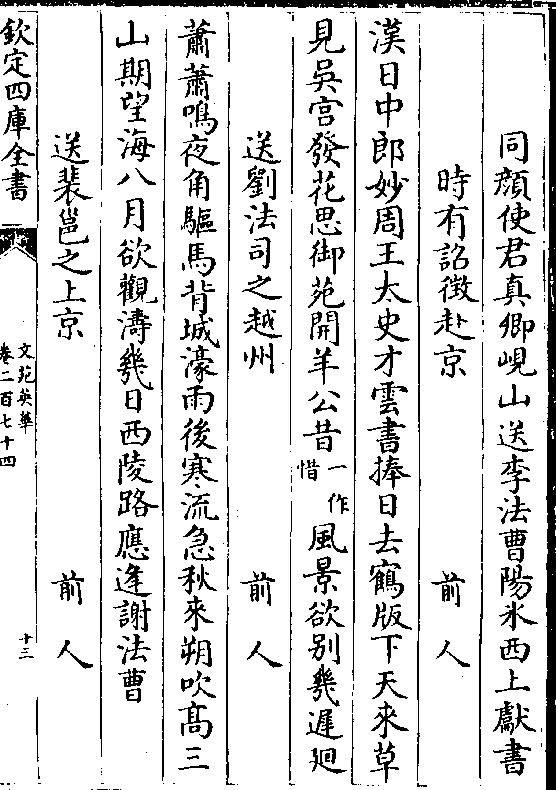 同顔使君真卿峴山送李法曹陽氷西上獻書
時有詔徴赴京　前人
漢日中郎妙周王太史才雲書捧日去鶴版下天來草
見吳宫發花思御苑開羊公昔一作惜風景欲别㡬遲廻
送劉法司之越州　前人
蕭蕭鳴夜角驅馬背城濠雨後寒流急秋來朔吹髙三
山期望海八月欲觀濤㡬日西陵路應逢謝法曹
送裴邕之上京　前人
欽定四庫全書
文苑英華
卷二百七十四
十三